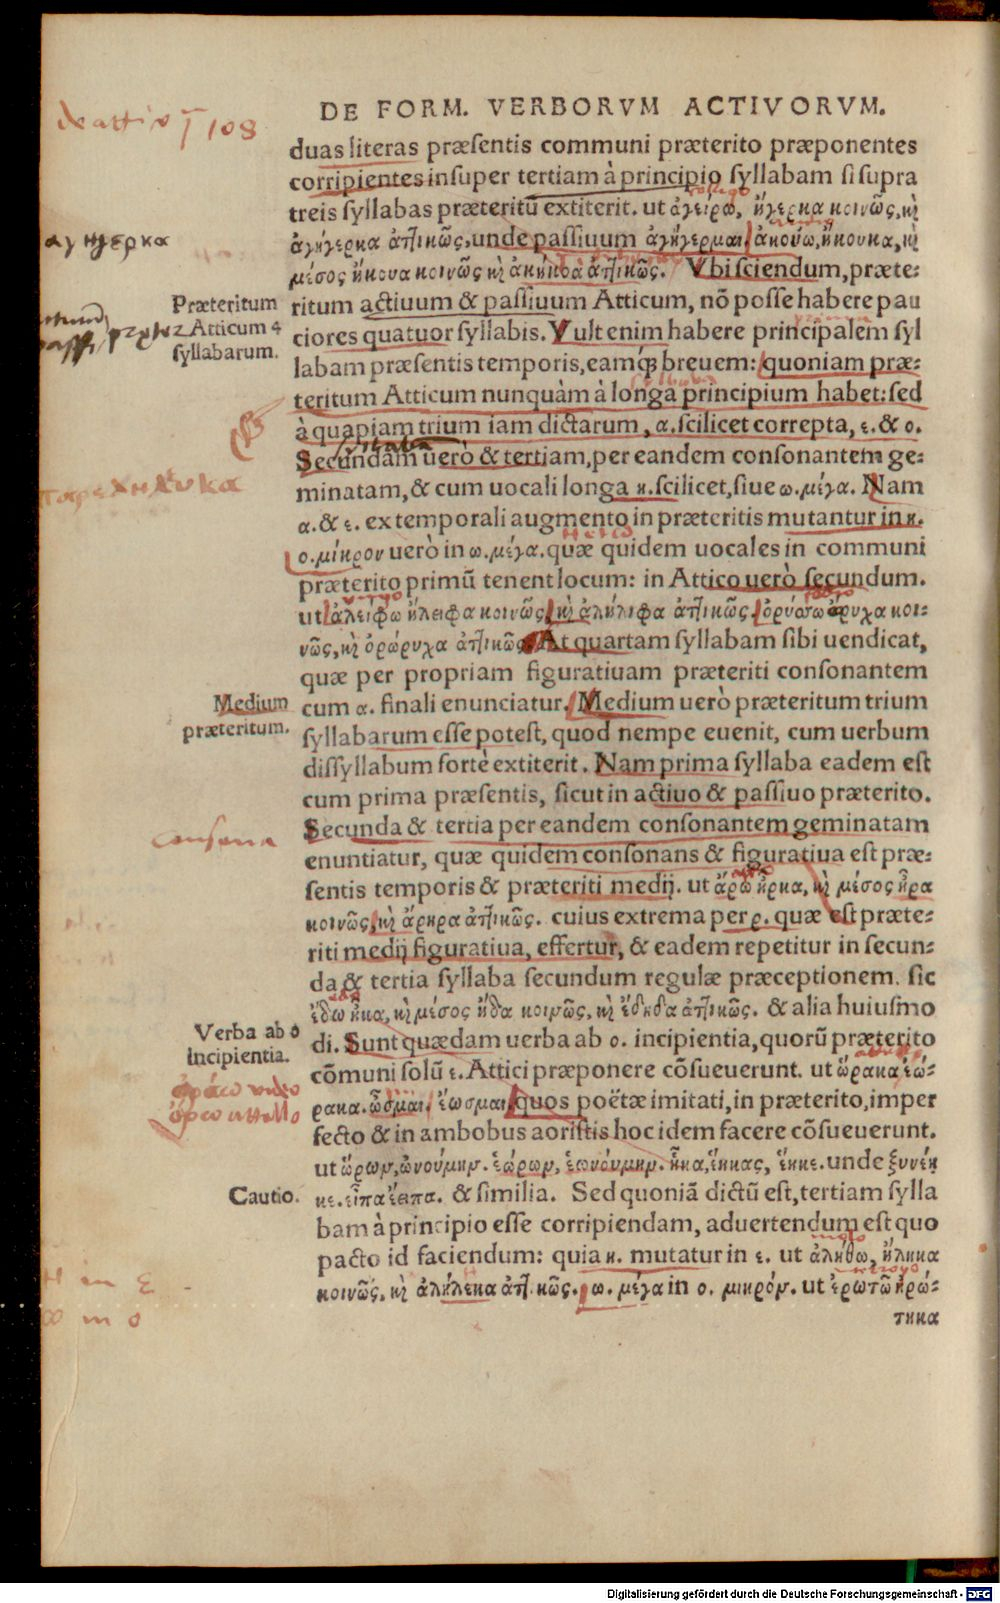 DE FORM. VERBORVM ACTIVORVM.
duas literas præsentis communi præterito præponentes
corripientes insuper tertiam à principio syllabam si supra
treis syllabas præteritũ extiterit. ut ἀγείρω, ἤγερκα κοινῶς, κὶ
ἀγήγερκα ἀτ]ικῶς, unde passiuum ἀγήγερμαι. ἀκούω, ἤκουκα, κὶ
μέσος ἤκουα κοινῶς κὶ ἀκήκοα ἀτ]ικῶς. Vbi sciendum, præte-
Præteritum
Atticum 4
syllabarum.
ritum actiuum & passiuum Atticum, nõ posse habere pau
ciores quatuor syllabis. Vult enim habere principalem syl
labam præsentis temporis, eamq́; breuem: quoniam præ-
teritum Atticum nunquàm à longa principium habet: sed
à quapiam trium iam dictarum, α. scilicet correpta, ε. & ο.
Secundam uerò & tertiam, per eandem consonantem ge-
minatam, & cum uocali longa η. scilicet, siue ω. μέγα. Nam
α. & ε. ex temporali augmento in præteritis mutantur in η.
ο. μίκρον uerò in ω. μέγα. quæ quidem uocales in communi
præterito primũ tenent locum: in Attico uerò secundum.
ut ἀλείφω ἤλειφα κοινῶς, κὶ ἀλήλιφα ἀτ]ικῶς. ὀρύσσω ὤρυχα κοι-
νῶς, κὶ ὀρώρυχα ἀτ]ικῶς. At quartam syllabam sibi uendicat,
quæ per propriam figuratiuam præteriti consonantem
Medium
præteritum.
cum α. finali enunciatur. Medium uerò præteritum trium
syllabarum esse potest, quod nempe euenit, cum uerbum
dissyllabum fortè extiterit. Nam prima syllaba eadem est
cum prima præsentis, sicut in actiuo & passiuo præterito.
consona
Secunda & tertia per eandem consonantem geminatam
enuntiatur, quæ quidem consonans & figuratiua est præ-
sentis temporis & præteriti medij. ut ἄρω ἦρκα, κὶ μέσος ἦρα
κοινῶς, κὶ ἄρηρα ἀτ]ικῶς. cuius extrema per ρ. quæ est præte-
riti medij figuratiua, effertur, & eadem repetitur in secun-
da & tertia syllaba secundum regulæ præceptionem. sic
ἔδω ἦκα, κὶ μέσος ἤδα κοινῶς, κὶ ἔδηδα ἀτ]ικῶς. & alia huiusmo
Verba ab ο
incipientia.
di. Sunt quædam uerba ab ο. incipientia, quorũ præterito
cõmuni solũ ε. Attici præponere cõsueuerunt. ut ὥρακα, ἑώ-
ρακα. ὦσμαι, ἔωσμαι, quos poëtæ imitati, in præterito, imper
fecto & in ambobus aoristis hoc idem facere cõsueuerunt.
ut ὥρων, ὠνούμην. ἑώρων, ἐωνούμην. ἧκα, ἕηκας, ἕηκε. unde ξυνέη
Cautio.
κε. εἶπα ἔειπα. & similia. Sed quoniã dictũ est, tertiam sylla
bam à principio esse corripiendam, aduertendum est quo
pacto id faciendum: quia η. mutatur in ε. ut ἀλήθω, ἤληκα
κοινῶς, κὶ ἀλήλεκα ἀτ]ικῶς. ω. μέγα in ο. μικρόν. ut ἐρωτῶ ἠρώ-
τηκα
Digitalisierung gefördert durch die Deutsche Forschungsgemeinschaft - DFG